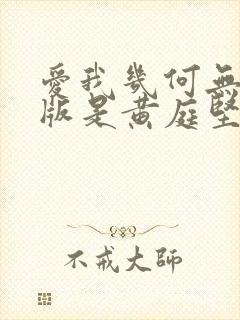 愛我幾何無
版是黃庭堅
不戒大師